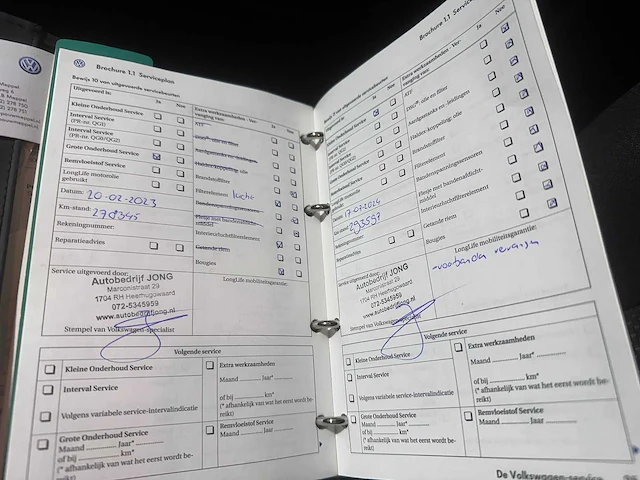 Meppel
Brochure 1.1 Serviceplan
Bewijs 10 van uitgevoerde servicebeurten
Uitgevoerd is:
Ja
Nee
Extra werkzaamheden - Ver-
vanging van:
Ja
Nee
Kleine Onderhoud Service
ATF
Interval Service
(PR-nr. QG1)
DSG®: olie en filter
Interval Service
(PR-nr. QG0/QG2)
Aardgastanks en -leidingen
Grote Onderhoud Service
Haldex-koppeling: olie
Remvloeistof Service
Brandstoffilter
LongLife motorolie
gebruikt
Filterelement lucht
Datum: 20-02-2023
Bandenspanningssensoren
Km-stand: 278345
Flesje met bandenafdicht-
middel
Rekeningnummer:
Interieur/luchtfilterelement
Reparatieadvies
Getande riem
Bougies
Service uitgevoerd door:
LongLife mobiliteitsgarantie:
Autobedrijf JONG
Marconistraat 29
1704 RH Heerhugowaard
072-5345959
www.autobedrijfjong.nl
Stempel van Volkswagen-specialist
Volgende service
Kleine Onderhoud Service
Extra werkzaamheden
Maand Jaar*
Interval Service
of bij km*
(* afhankelijk van wat het eerst wordt be-
reikt)
Volgens variabele service-intervalindicatie
Grote Onderhoud Service
Maand Jaar*
of bij km*
(* afhankelijk van wat het eerst wordt be-
reikt)
Remvloeistof Service
Maand Jaar
Brochure 1.1 Service
Ja
Nee
Extra werkzaamheden - Ver-
vanging van:
Ja
Nee
ATF
DSG®: olie en filter
Aardgastanks en -leidingen
Haldex-koppeling: olie
Brandstoffilter
Filterelement
Bandenspanningssensoren
Flesje met bandenafdicht-
middel
Interieur/luchtfilterelement
Getande riem
Bougies
Datum: 17-07-2024
Km-stand: 293597
Rekeningnummer:
Reparatieadvies
Service uitgevoerd door:
LongLife mobiliteitsgarantie:
Autobedrijf JONG
Marconistraat 29
1704 RH Heerhugowaard
072-5345959
www.autobedrijfjong.nl
Stempel van Volkswagen-specialist
Volgende service
Kleine Onderhoud Service
Extra werkzaamheden
Maand Jaar*
Interval Service
of bij km*
(* afhankelijk van wat het eerst wordt be-
reikt)
Volgens variabele service-intervalindicatie
Grote Onderhoud Service
Maand Jaar*
of bij km*
(* afhankelijk van wat het eerst wordt be-
reikt)
Remvloeistof Service
Maand Jaar
De Volkswagen-service